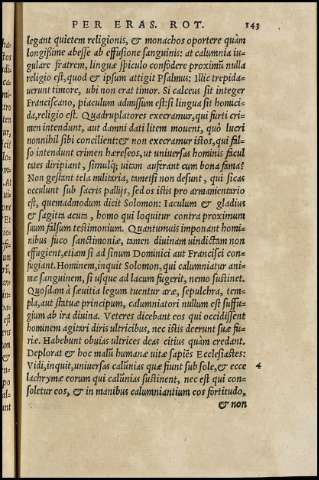 PER ERAS. ROT. 143
legant quietem religionis, & monachos oportere quàm
longissime abesse ab effusione sanguinis: at calumnia iu-
gulare fratrem, linguæ spiculo confodere proximũ nulla
religio est, quod & ipsum attigit Psalmus: Illic trepida-
uerunt timore, ubi non erat timor. Si calceus sit integer
Franciscano, piaculum admissum est: si lingua sit homici-
da, religio est. Quadruplatores execramur, qui furti cri-
men intendunt, aut damni dati litem mouent, quò lucri
nonnihil sibi concilient: & non execramur istos, qui fal-
so intendunt crimen hæreseos, ut uniuersas hominis facul
tates diripiant, simulq; uitam auferant cum bona fama?
Non gestant tela militaria, tametsi non desunt, qui sicas
occulunt sub sacris pallijs, sed os istis pro armamentario
est, quemadmodum dicit Solomon: Iaculum & gladius
& sagitta acuta, homo qui loquitur contra proximum
suum falsum testimonium. Quantumuis imponant homi
nibus fuco sanctimoniæ, tamen diuinam uindictam non
effugient, etiam si ad sinum Dominici aut Francisci con-
fugiant. Hominem, inquit Solomon, qui calumniatur ani-
mæ sanguinem, si usque ad lacum fugerit, nemo sustinet.
Quosdam à sæuitia legum tuentur aræ, sepulchra, tem-
pla, aut statuæ principum, calumniatori nullum est suffu-
gium ab ira diuina. Veteres dicebant eos qui occidissent
hominem agitari diris ultricibus, nec istis deerunt suæ fu-
riæ. Habebunt obuias ultrices deas citius quàm credant.
Deplorat & hoc malũ humanæ uitæ sapiẽs Ecclesiastes:
Vidi, inquit, uniuersas calũnias quæ fiunt sub sole, & ecce 4
lachrymæ eorum qui calũnias sustinent, nec est qui con-
soletur eos, & in manibus calumniantium eos fortitudo,
& non